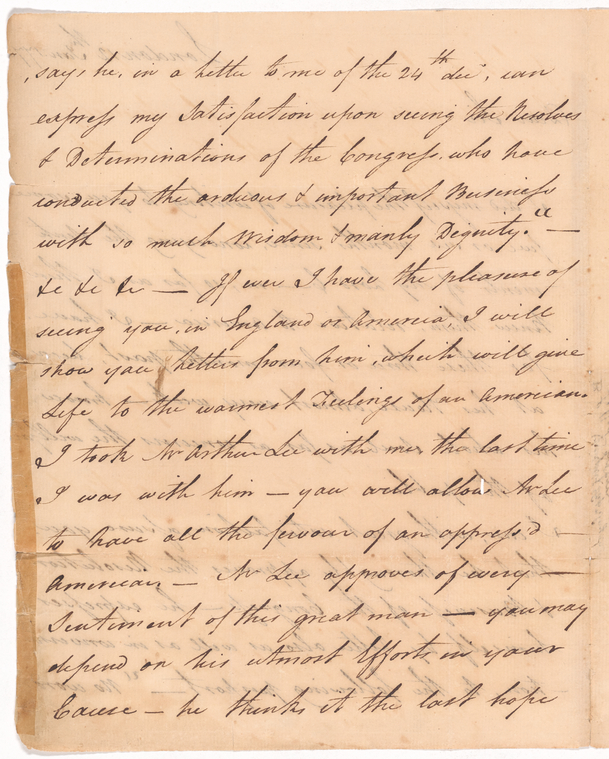 says he, in a Letter to me of the 24th decr, can
express my Satisfaction upon seeing the Resolves
& Determinations of the Congress, who have
conducted the arduous & important Business
with so much Wisdom & manly Dignity." —
&c &c &c — If ever I have the pleasure of
seeing you, in England or America, I will
show you Letters from him, which will give
Life to the warmest Feelings of an American.
I took Mr Arthur Lee with me, the last time
I was with him — you will allow Mr Lee
to have all the fervour of an oppress'd —
American — Mr Lee approves of every —
Sentiment of this great man — you may
depend on his utmost Efforts in your
Cause — he thinks it the last hope